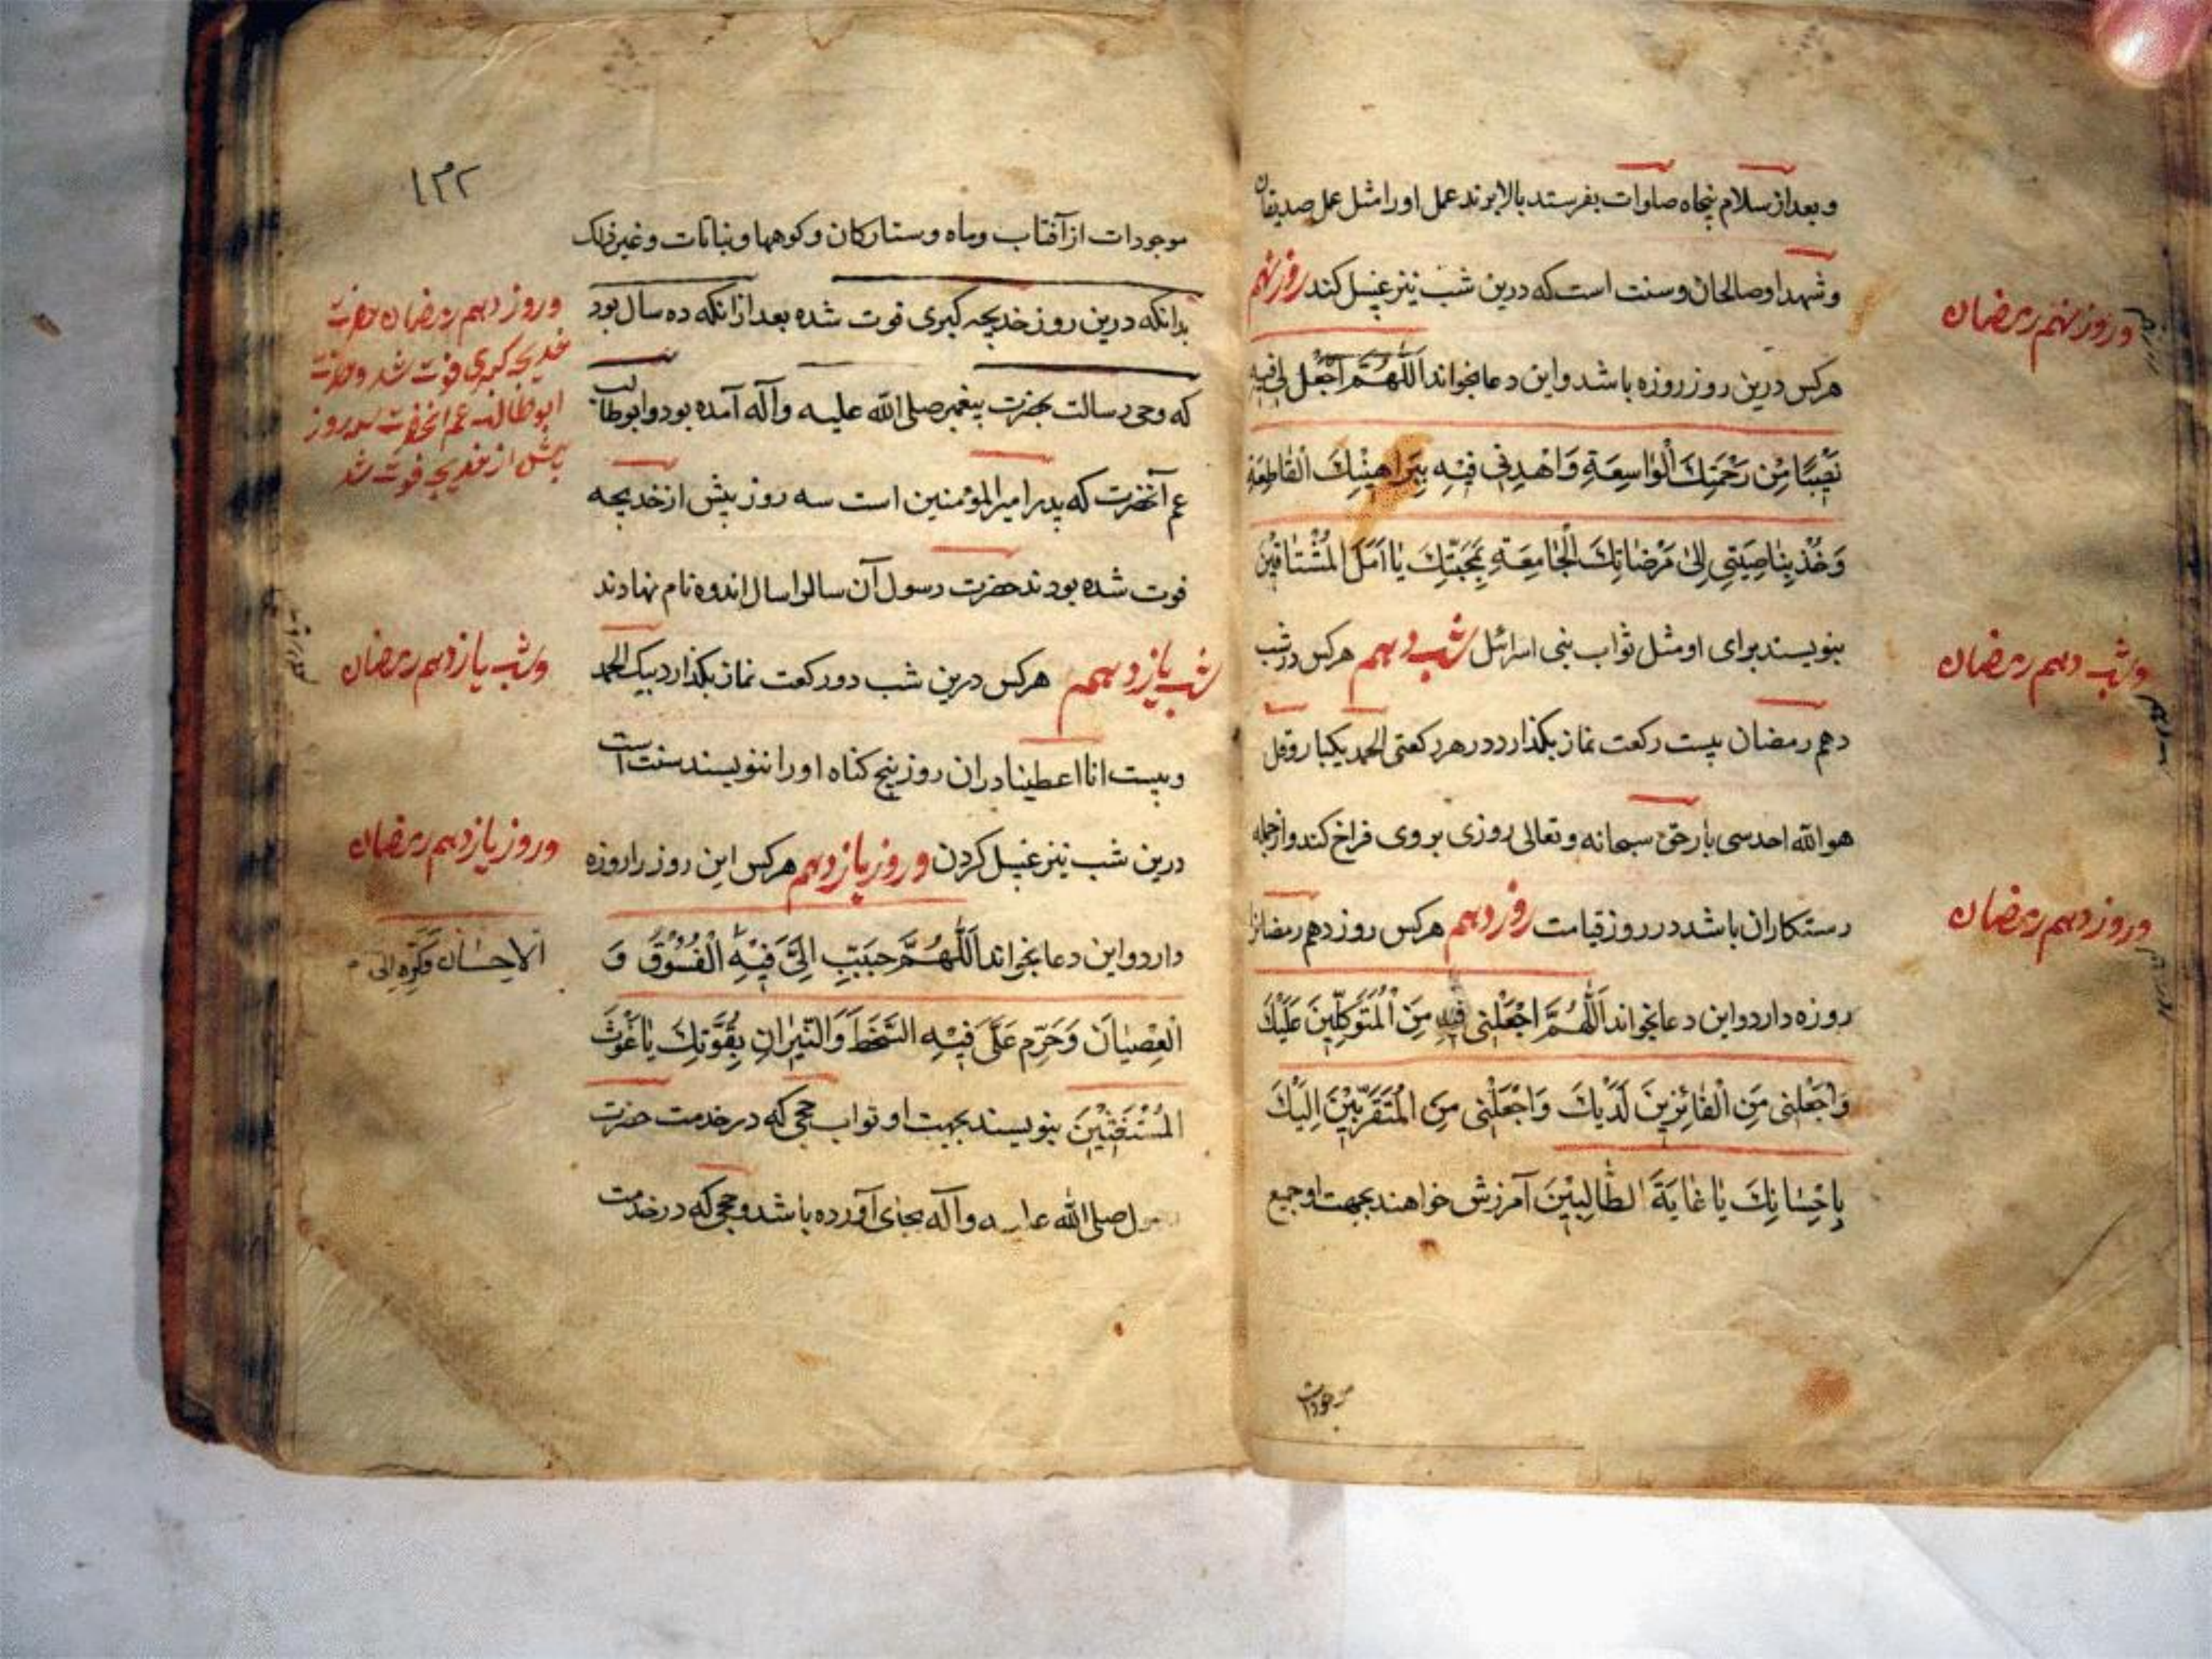 و بعد از سلام پنجاه صلوات بفرستد بالا برند عمل او را مثل عمل صدیقان
و شهدا و صالحان و سنت است که درین شب نیز غسل کند روز نهم
هرکس درین روز روزه باشد و این دعا بخواند اَللّهُمَّ اجْعَل لی فیهِ
نَصیبًا مِن رَحْمَتِكَ الْواسِعَةِ وَاهْدِنی فیهِ بِبَراهینِكَ الْقاطِعَةِ
وَخُذْ بِناصِیَتی اِلی مَرْضاتِكَ الْجامِعَةِ بِمَحَبَّتِكَ یا اَمَلَ الْمُشْتاقینَ
بنویسند برای او مثل ثواب بنی اسرائل شب دهم هرکس در شب
دهم رمضان بیست رکعت نماز بکذارد در هر رکعتی الحمد یکبار و قل
هو الله احد سی بار حق سبحانه و تعالی روزی بر وی فراخ کند و از جمله
رستکاران باشد در روز قیامت روز دهم هرکس روز دهم رمضانرا
روزه دارد و این دعا بخواند اَللّهُمَّ اجْعَلْنی فیهِ مِنَ الْمُتَوَكِّلینَ عَلَیْكَ
وَاجْعَلْنی مِنَ الْفائِزینَ لَدَیْكَ وَاجْعَلْنی مِنَ الْمُقَرَّبینَ اِلَیْكَ
بِاِحْسانِكَ یا غایَةَ الطّالِبینَ آمرزش خواهند بجهت او جمیع
موجودات
و روز نهم رمضان
و شب دهم رمضان
و روز دهم رمضان
۱۳۲
موجودات از آفتاب و ماه و ستارکان و کوهها و نباتات و غیر ذلک
بدانکه درین روز خدیجه کبری فوت شده بعد از انکه ده سال بود
که وحی رسالت بحضرت پیغمبر صلی الله علیه وآله آمده بود و ابوطالب
عم آنحضرت که پدر امیرالمؤمنین است سه روز پیش از خدیجه
فوت شده بودند حضرت رسول آن سالرا سال اندوه نام نهادند
شب یازدهم هرکس درین شب دو رکعت نماز بکذارد بیک الحمد
و بیست انا اعطینا در ان روز هیچ کناه او را ننویسند سنت است
درین شب نیز غسل کردن و روز یازدهم هرکس این روز را روزه
دارد و این دعا بخواند اَللّهُمَّ حَبِّبْ اِلَیَّ فیهِ الْفُسُوقَ وَ
الْعِصْیانَ وَحَرِّمْ عَلَیَّ فیهِ السَّخَطَ وَالنّیرانَ بِقُوَّتِكَ یا غَوْثَ
الْمُسْتَغیثینَ بنویسند بجهت او ثواب حجی که در خدمت حضرت
رسول صلی الله علیه وآله بجای آورده باشد و حجی که در خدمت
و روز دهم رمضان حضرت
خدیجه کبری فوت شد و حضرت
ابوطالب عم انحضرت سه روز
پیش از خدیجه فوت شد
و شب یازدهم رمضان
و روز یازدهم رمضان
الاحسان وكَرِّه الی